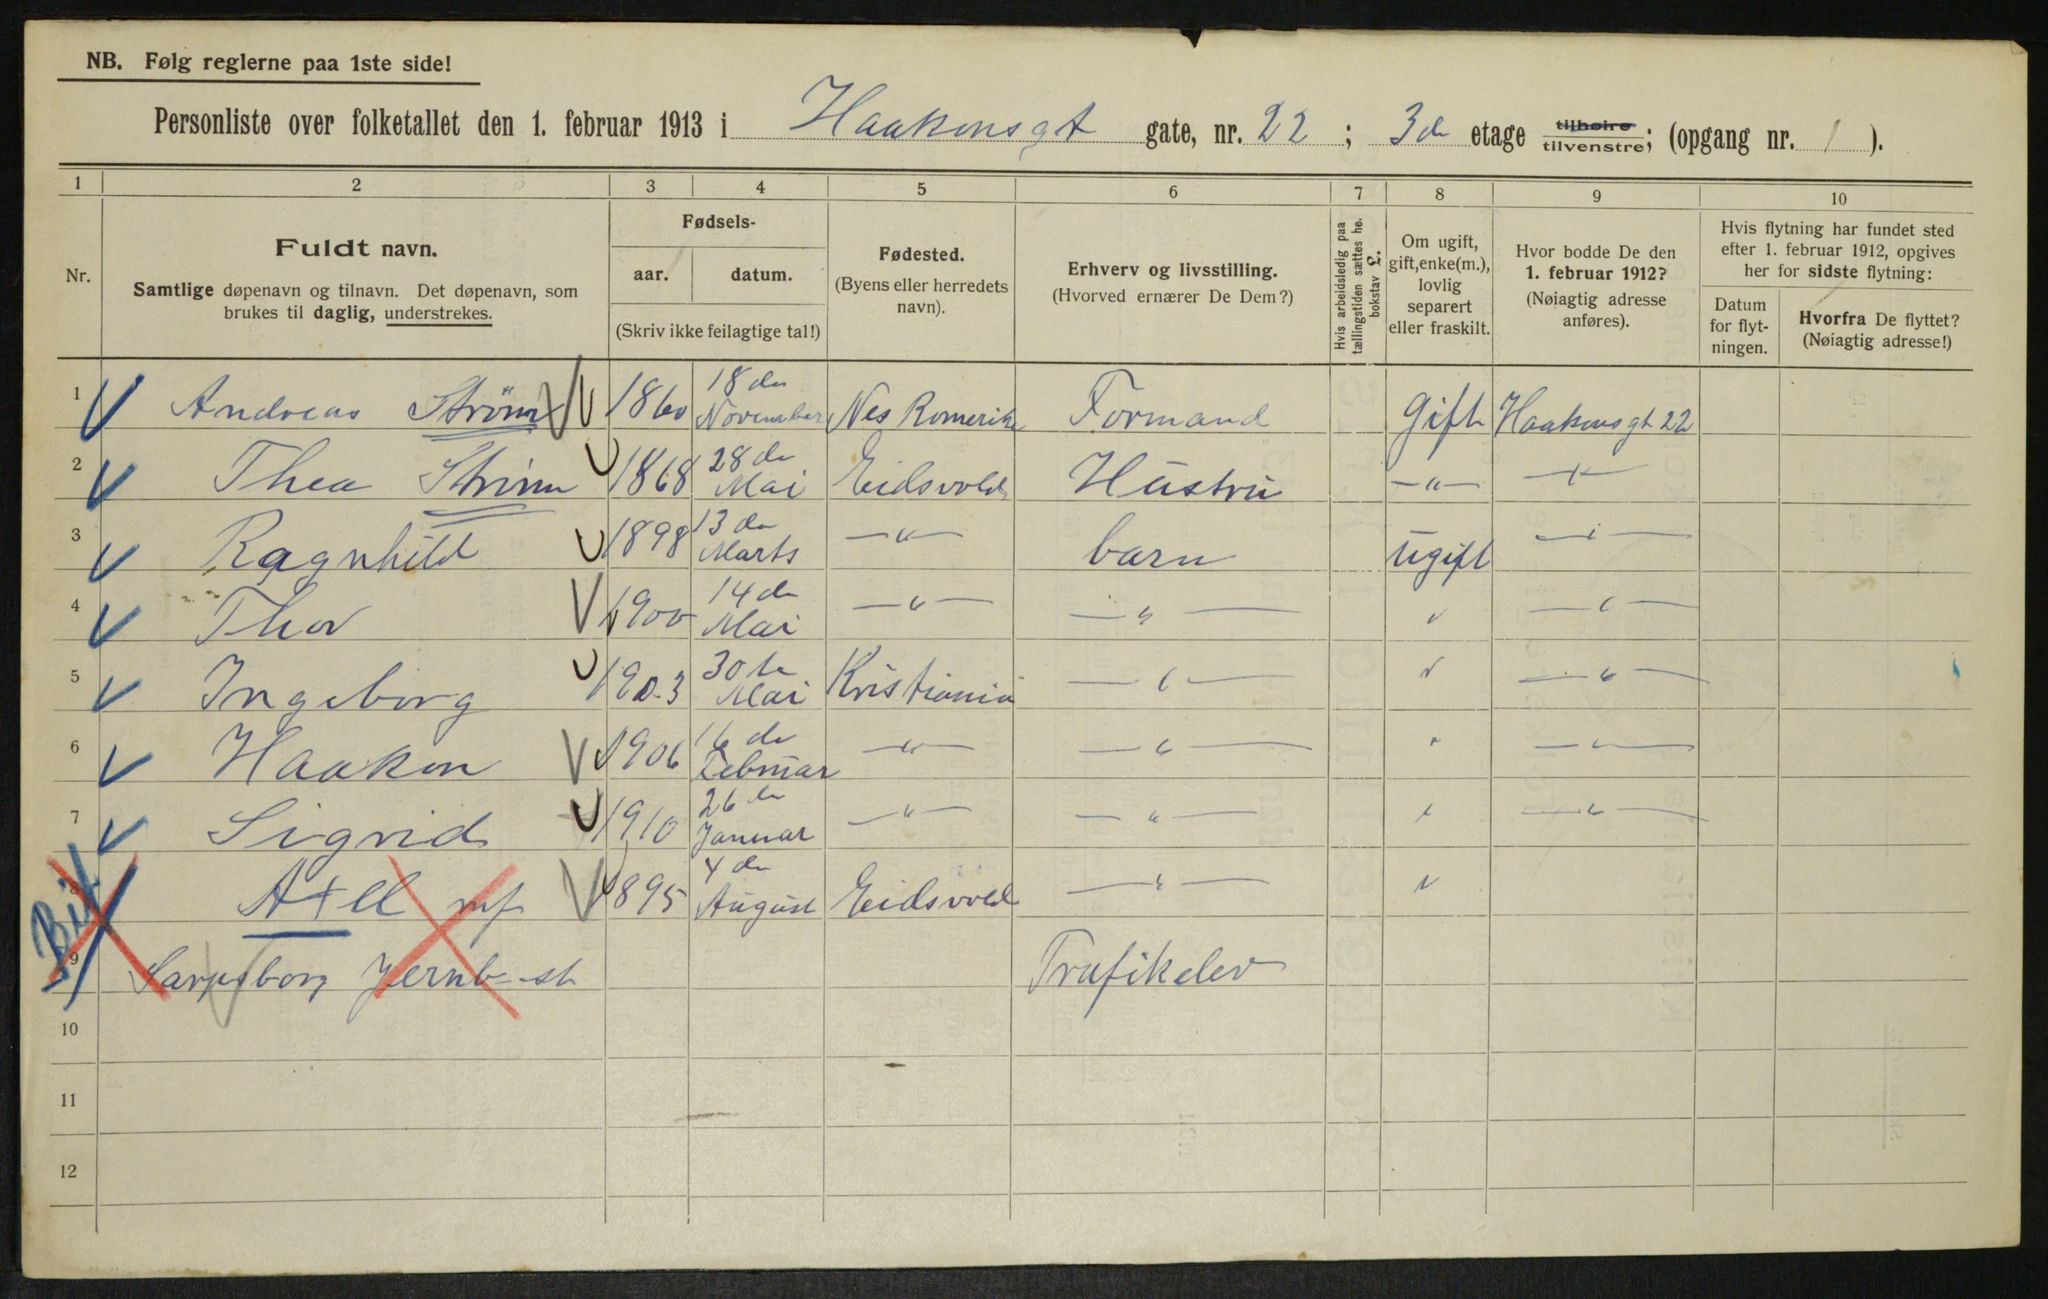 NB. Følg reglerne paa 1ste side!
Personliste over folketallet den 1. februar 1913 i Haakonsgt gate, nr. 22 ; 3de etage tilhøire tilvenstre; (opgang nr. 1 ).
1 2 3 4 5 6 7 8 9 10
Nr.
Fuldt navn.
Samtlige døpenavn og tilnavn. Det døpenavn, som
brukes til daglig, understrekes.
Fødsels-
aar. datum.
(Skriv ikke feilagtige tal!)
Fødested.
(Byens eller herredets
navn).
Erhverv og livsstilling.
(Hvorved ernærer De Dem?)
Hvis arbeidsledig paa
tællingstiden sættes he.
bokstav L.
Om ugift,
gift, enke(m.),
lovlig
separert
eller fraskilt.
Hvor bodde De den
1. februar 1912?
(Nøiagtig adresse
anføres).
Hvis flytning har fundet sted
efter 1. februar 1912, opgives
her for sidste flytning:
Datum
for flyt-
ningen.
Hvorfra De flyttet?
(Nøiagtig adresse!)
1 Andreas Ström 1860 18de November Nes Romerike Formand Gift Haakonsgt 22
2 Thea Ström 1868 28de Mai Eidsvold Hustru —"— —"—
3 Ragnhild 1898 13de Marts —"— barn ugift —"—
4 Thor 1900 14de Mai —"— —"— " —"—
5 Ingeborg 1903 30te Mai Kristiania —"— " —"—
6 Haakon 1906 16de Februar —"— —"— " —"—
7 Sigrid 1910 26de Januar —"— —"— " —"—
8 Axel 1895 4de August Eidsvold —"— "
9 Sarpsborg Jernb-st Trafikelev
10
11
12